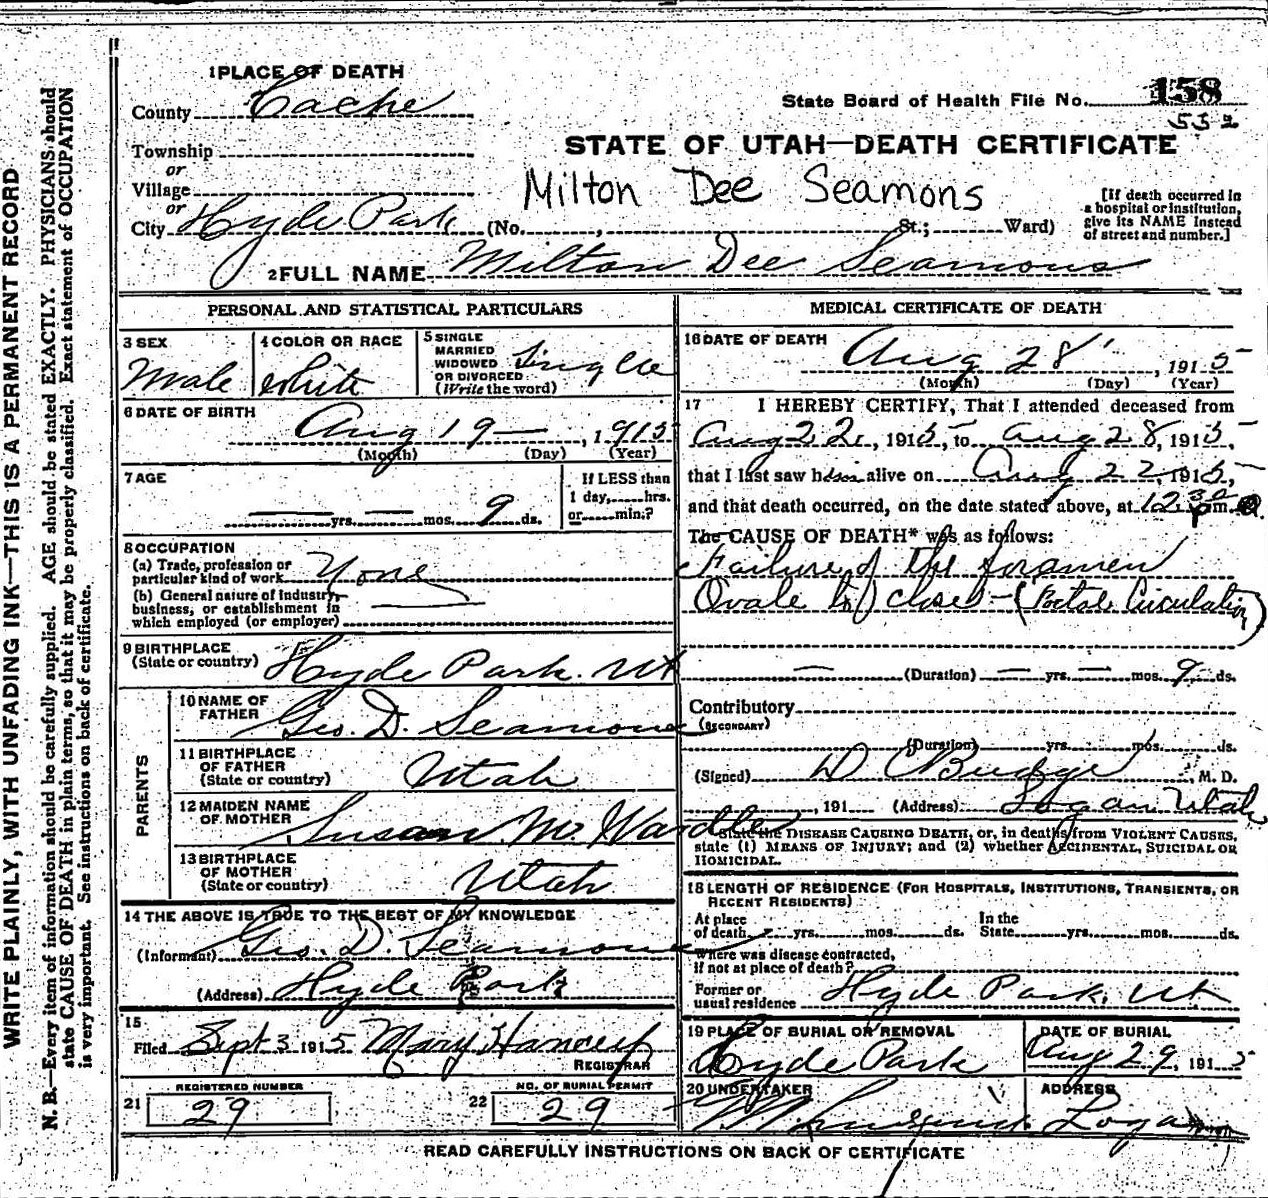 WRITE PLAINLY, WITH UNFADING INK—THIS IS A PERMANENT RECORD
N. B.—Every item of information should be carefully supplied. AGE should be stated EXACTLY. PHYSICIANS should
state CAUSE OF DEATH in plain terms, so that it may be properly classified. Exact statement of OCCUPATION
is very important. See instructions on back of certificate.
1 PLACE OF DEATH
County Cache
State Board of Health File No. 158
532
Township
or
Village
or
City Hyde Park (No. , St.; Ward)
STATE OF UTAH—DEATH CERTIFICATE
Milton Dee Seamons
[If death occurred in
a hospital or institution,
give its NAME instead
of street and number.]
2 FULL NAME Milton Dee Seamons
PERSONAL AND STATISTICAL PARTICULARS
3 SEX
Male
4 COLOR OR RACE
white
5 SINGLE
MARRIED
WIDOWED
OR DIVORCED
(Write the word)
Single
6 DATE OF BIRTH
Aug 19 — , 1915
(Month) (Day) (Year)
7 AGE
— yrs. — mos. 9 ds.
If LESS than
1 day, hrs.
or min.?
8 OCCUPATION
(a) Trade, profession or
particular kind of work None
(b) General nature of industry,
business, or establishment in
which employed (or employer)
9 BIRTHPLACE
(State or country) Hyde Park. Ut
PARENTS
10 NAME OF
FATHER Geo. D. Seamons
11 BIRTHPLACE
OF FATHER
(State or country) Utah
12 MAIDEN NAME
OF MOTHER Susan M. Wardle
13 BIRTHPLACE
OF MOTHER
(State or country) Utah
14 THE ABOVE IS TRUE TO THE BEST OF MY KNOWLEDGE
(Informant) Geo. D. Seamons
(Address) Hyde Park
15
Filed Sept 3 1915 Mary Hancey
REGISTRAR
REGISTERED NUMBER
21 29
NO. OF BURIAL PERMIT
22 29
MEDICAL CERTIFICATE OF DEATH
16 DATE OF DEATH
Aug 28 , 1915
(Month) (Day) (Year)
17 I HEREBY CERTIFY, That I attended deceased from
Aug 22, 1915, to Aug 28, 1915,
that I last saw him alive on Aug 22, 1915,
and that death occurred, on the date stated above, at 12 30 p m.
The CAUSE OF DEATH* was as follows:
Failure of the foramen
Ovale to close — (Foetal Circulation)
— (Duration) — yrs. — mos. 9 ds.
Contributory
(SECONDARY)
(Duration) yrs. mos. ds.
(Signed) D C Budge, M. D.
, 191 (Address) Logan Utah
*State the DISEASE CAUSING DEATH, or, in deaths from VIOLENT CAUSES,
state (1) MEANS OF INJURY; and (2) whether ACCIDENTAL, SUICIDAL OR
HOMICIDAL.
18 LENGTH OF RESIDENCE (FOR HOSPITALS, INSTITUTIONS, TRANSIENTS, OR
RECENT RESIDENTS)
At place
of death yrs. mos. ds.
In the
State yrs. mos. ds.
Where was disease contracted,
if not at place of death?
Former or
usual residence Hyde Park, Ut
19 PLACE OF BURIAL OR REMOVAL
Hyde Park
DATE OF BURIAL
Aug 29, 1915
20 UNDERTAKER
ADDRESS
Logan
READ CAREFULLY INSTRUCTIONS ON BACK OF CERTIFICATE